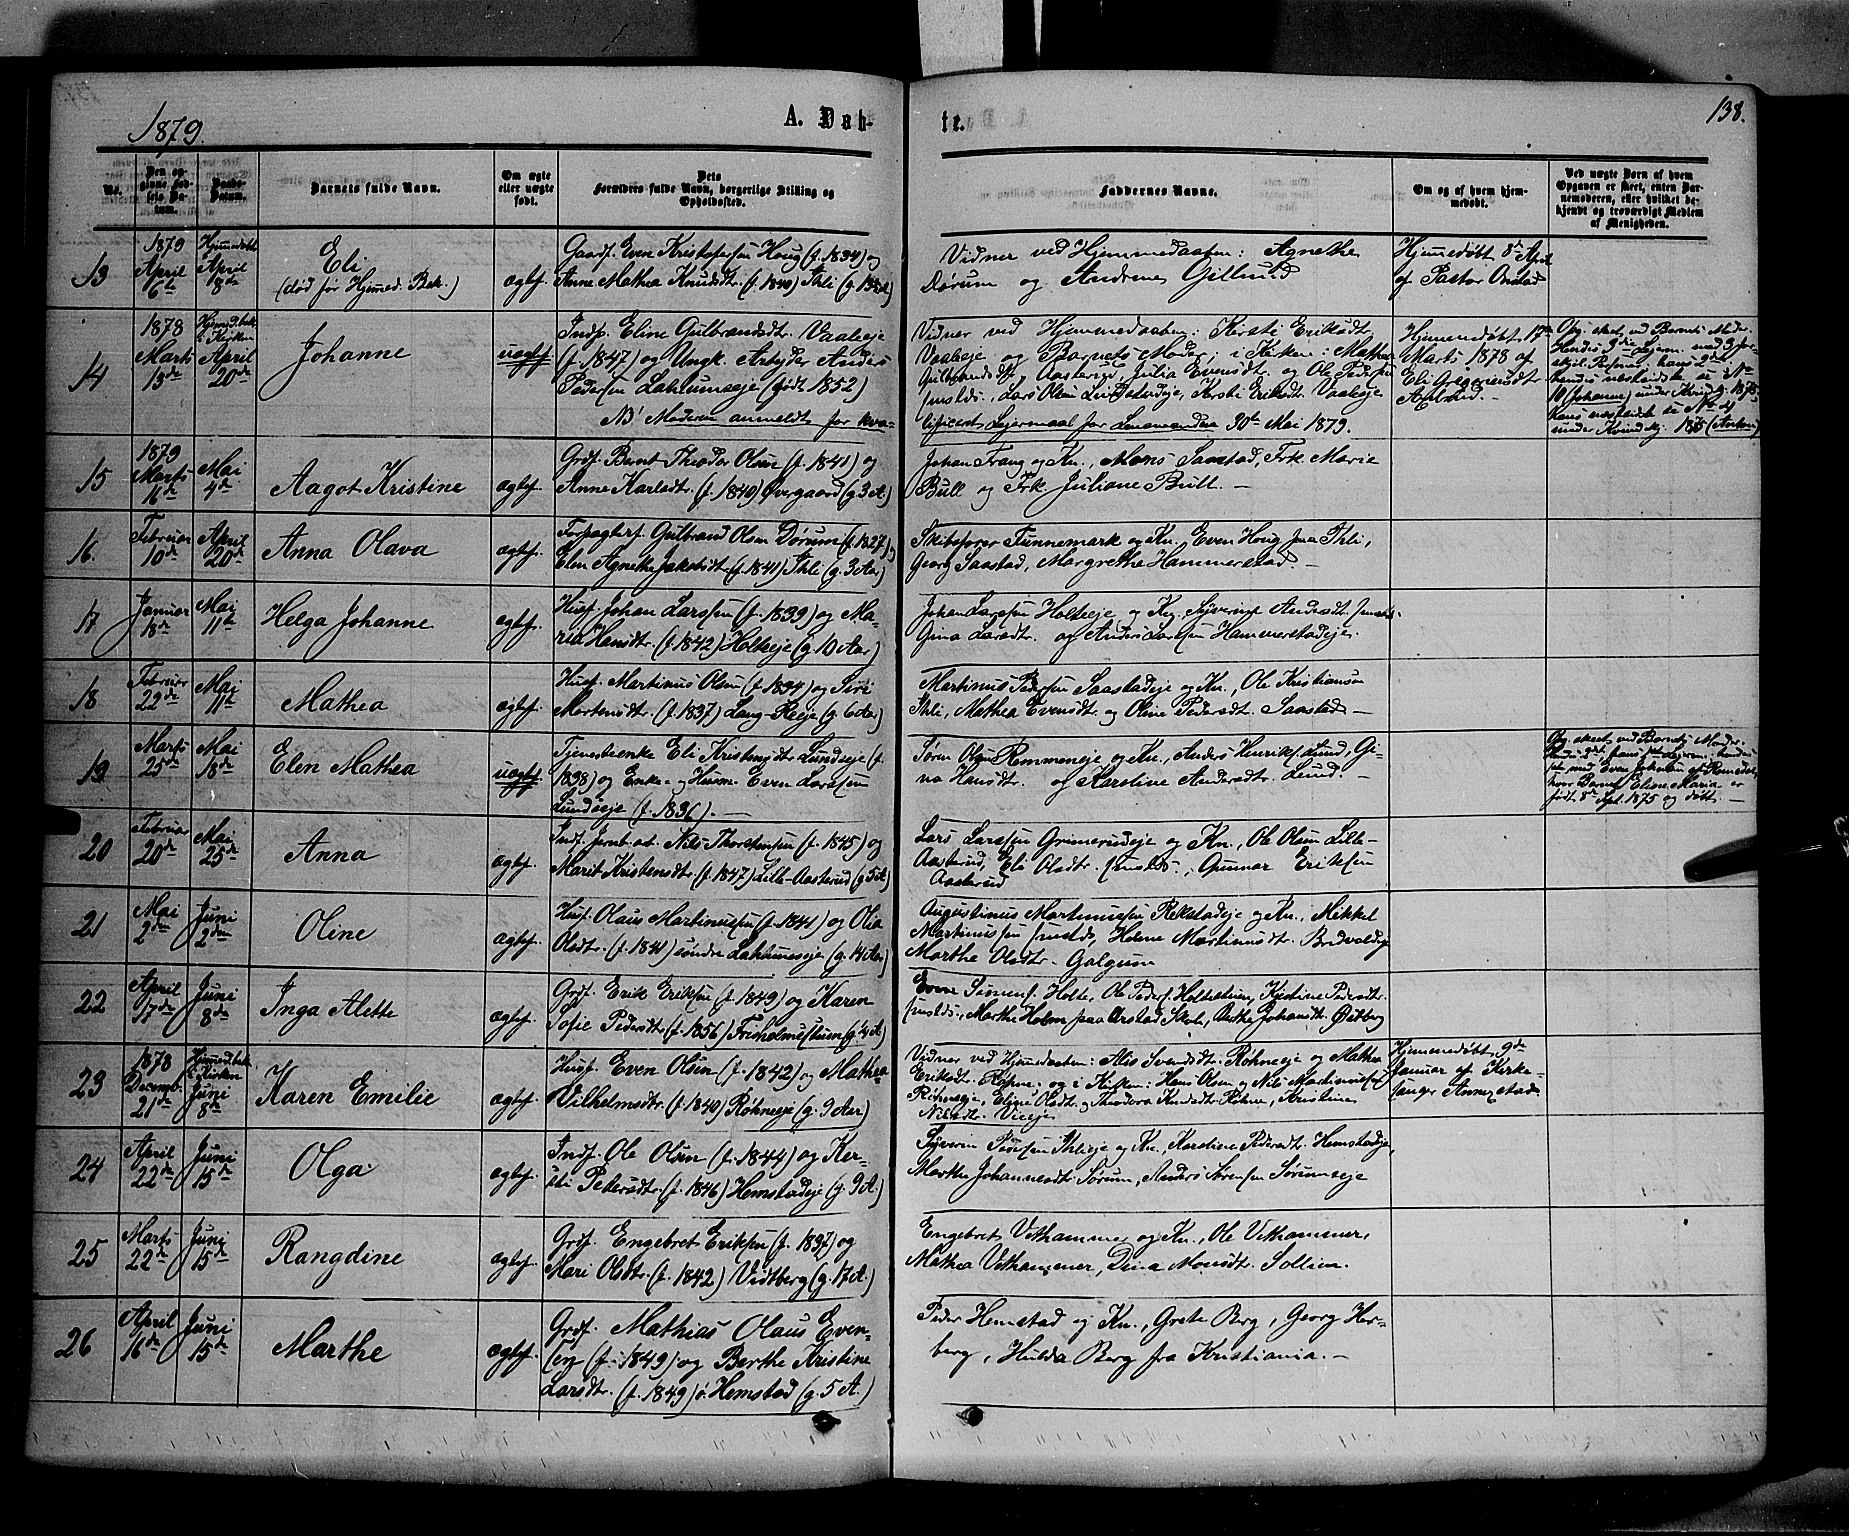 1879.
A. Døb-
te.
138.
No.
Den op-
givne Fød-
sels Da-
tum.
Daabs-
Datum.
Barnets fulde Navn.
Om ægte
eller uægte
født.
Dets
Forældres fulde Navn, borgerlige Stilling og
Opholdssted.
Faddernes Navne.
Om og af hvem hjem-
medøbt.
Ved uægte Børn af hvem
Opgaven er skeet, enten Bar-
nemoderen, eller hvilket be-
kjendt og troværdigt Medlem
af Menigheden.
13
1879
April
6te
Hjemmedøbt
April
8de
Eli
(død før Hjemmed. Bek.)
ægtef.
Gaardf. Even Kristofersen Houg (f. 1834) og
Anne Mathea Knudsdt. (f. 1840) Ihli
Vidner ved Hjemmedaaben: Agnethe
Dørum og Andrene Gillund
Hjemmedøbt 8de April
af Pastor Onstad
14
1878
Marts
13de
Hjemmed. bek.
i Kirken
April
20de
Johanne
uægtef.
Inds. Eline Gulbrandsdt. Vaaleeje
(f. 1847) og Ungk. Arbejder Anders
Pedersen Laktumseje (født 1852)
NB! Moderen anmeldt for kva-
Vidner ved Hjemmedaaben: Kersti Eriksdt.
Vaaleeje og Barnets Moder; i Kirken: Mathea
Gulbrandsdt. Aasterseje, Julia Evensdt. og Ole Pedersen
smstds., Lars Olsen, Kersti Eriksdt. Vaaleeje
lificeret Lejermaal for Lensmanden 30te Mai 1879.
Hjemmedøbt 17de
Marts 1878 af
Eli Gregersensdt.
Opg. skeet ved Barnets Moder.
Hendes 3die Lejerm. med 3 for-
skjel. Personer, hans 2det.
10 (Johanne) under Kvindkj. 1875,
Hans næstsidste er No 4
under Kvindkj. 1875 (Anton)
15
1879
Marts
16de
Mai
4de
Aagot Kristine
ægtef.
Grdf. Bernt Theodor Olsen (f. 1841) og
Anne Karlsdt. (f. 1840) Overgaard (g. 3 A.)
Johan Frang og Kn., Mons Saastad, Frk. Marie
Bull og Frk. Juliane Bull. —
16.
Februar
10de
April
20de
Anna Olava
ægtef.
Forpagterf. Gulbrand Olsen Dørum (f. 1827) og
Elen Agnethe Jakobsdt. (f. 1841) Ihli (g. 3 Aar)
Skibsfører Tunnemark og Kn., Even Houg paa Ihli,
Georg Saastad, Margrethe Hammerstad. —
17
Januar
18de
Mai
11te
Helga Johanne
ægtef.
Husf. Johan Larssen (f. 1839) og Ma-
rea Hansdt. (f. 1842) Holteeje (g. 10 Aar)
Johan Larssen Holteeje og Kn., Syverine Andersdt. smstds.
Gina Larsdt. og Anders Larssen Hammerstadeje.
18
Februar
22de
Mai
11te
Mathea
ægtef.
Husf. Martinus Olsen (f. 1834) og Siri
Mortensdt. (f. 1837) Lang-Reeje (g. 6 Aar)
Martinus Pedersen Saastadeje og Kn., Ole Kristiansen
Ihli, Mathea Evensdt. og Oline Pedersdt. Saastad —
19
Marts
25de
Mai
18de
Elen Mathea
uægtef.
Tjenesteenke Eli Kristensdt. Lundseje (f.
1838) og Enke- og Husm. Even Larssen
Lundseje (f. 1836). —
Søren Olsen Rommeneje og Kn., Anders Henriks. Lund, Gi-
na Hansdt. og Karoline Andersdt. Lund. —
Op. skeet ved Barnets Moder.
født 8de Sept. 1875 og døbt. —
20
Februar
20de
Mai
25de
Anna
ægtef.
Inds. Jernb.arb. Nils Thorstensen (f. 1845) og
Marit Kristensdt. (f. 1847) Lille-Aasterud (g. 5 A.)
Lars Larssen Grimerudeje og Kn., Ole Olsen Lille-
Aasterud, Eli Olsdt. smstds., Gunnar Eriksen
Aasterud
21
Mai
2den
Juni
2den
Oline
ægtef.
Husf. Olaus Martinussen (f. 1841) og Olia
Olsdt. (f. 1841) søndre Laktumseje (g. 14 Aar)
Augustinus Martinussen Rekstadeje og Kn., Mikkel
Martinussen smstds, Helene Martinusdt. Bredvoldeje
Marthe Olsdt. Galgum
22
April
17de
Juni
8de
Inga Alette
ægtef.
Grdf. Erik Eriksen (f. 1849) og Karen
Sofie Pedersdt. (f. 1856) Friholmestuen (g. 4 A.)
Even Simens. Holte, Ole Peders. Holtestuen, Kjestine Pedersdt.
smstds., Marthe Holm paa Arstad Skole, Berthe Johansdt. Østberg
23
1878
Decemb.
21de
Hjemmed. bek.
i Kirken
Juni
8de
Karen Emilie
ægtef.
Husf. Even Olsen (f. 1842) og Mathea
Vilhelmsdt. (f. 1840) Røhneeje (g. 9 Aar)
Vidner ved Hjemmedaaben: Alis Svendsdt. Røhneeje og Mathea
Eriksdt. Røhne. og i Kirken: Hans Olsen og Nils Martinussen
Røhneeje, Eline Olsdt. og Theodora Knudsdt. Røhne, Kristine
Nilsdt. Vieeje
Hjemmedøbt 9de
Januar af Kirke-
sanger Annexstad
24
April
22de
Juni
15de
Olga
ægtef.
Inds. Ole Olsen (f. 1844) og Ker-
sti Petersdt. (f. 1846) Hemstadeje (g. 9 A.)
Syverin Pedersen Ihlieje og Kn., Karoline Pedersdt. Hemstadeje,
Marthe Johannesdt. Sørum, Anders Sørensen Sørumseje
25
Marts
22de
Juni
15de
Rangdine
ægtef.
Grdf. Engebret Eriksen (f. 1837) og
Mari Olsdt. (f. 1842) Vidtberg (g. 17 A.)
Engebret Vethammer og Kn., Ole Vethammer,
Mathea Vethammer, Dina Monsdt. Sollien.
26
April
16de
Juni
15de
Marthe
ægtef.
Grdf. Mathias Olaus Even-
sen (f. 1849) og Berthe Kristine
Larsdt. (f. 1849) ø. Hemstad (g. 5 A.)
Peder Hemstad og Kn., Grete Berg, Georg Her-
berg, Hulda Berg fra Kristiania. —